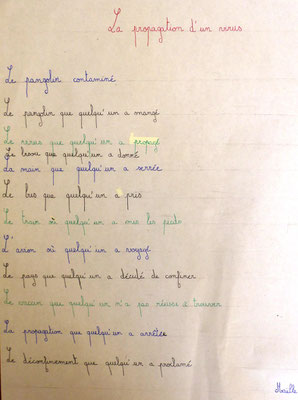 La propagation d'un virus
Le pangolin contaminé
Le pangolin que quelqu'un a mangé
Le virus que quelqu'un a propagé
Le bisou que quelqu'un a donné
La main que quelqu'un a serrée
Le bus que quelqu'un a pris
Le train où quelqu'un a mis les pieds
L'avion où quelqu'un a voyagé
Le pays que quelqu'un a décidé de confiner
Le vaccin que quelqu'un n'a pas réussi à trouver
La propagation que quelqu'un a arrêtée
Le déconfinement que quelqu'un a proclamé